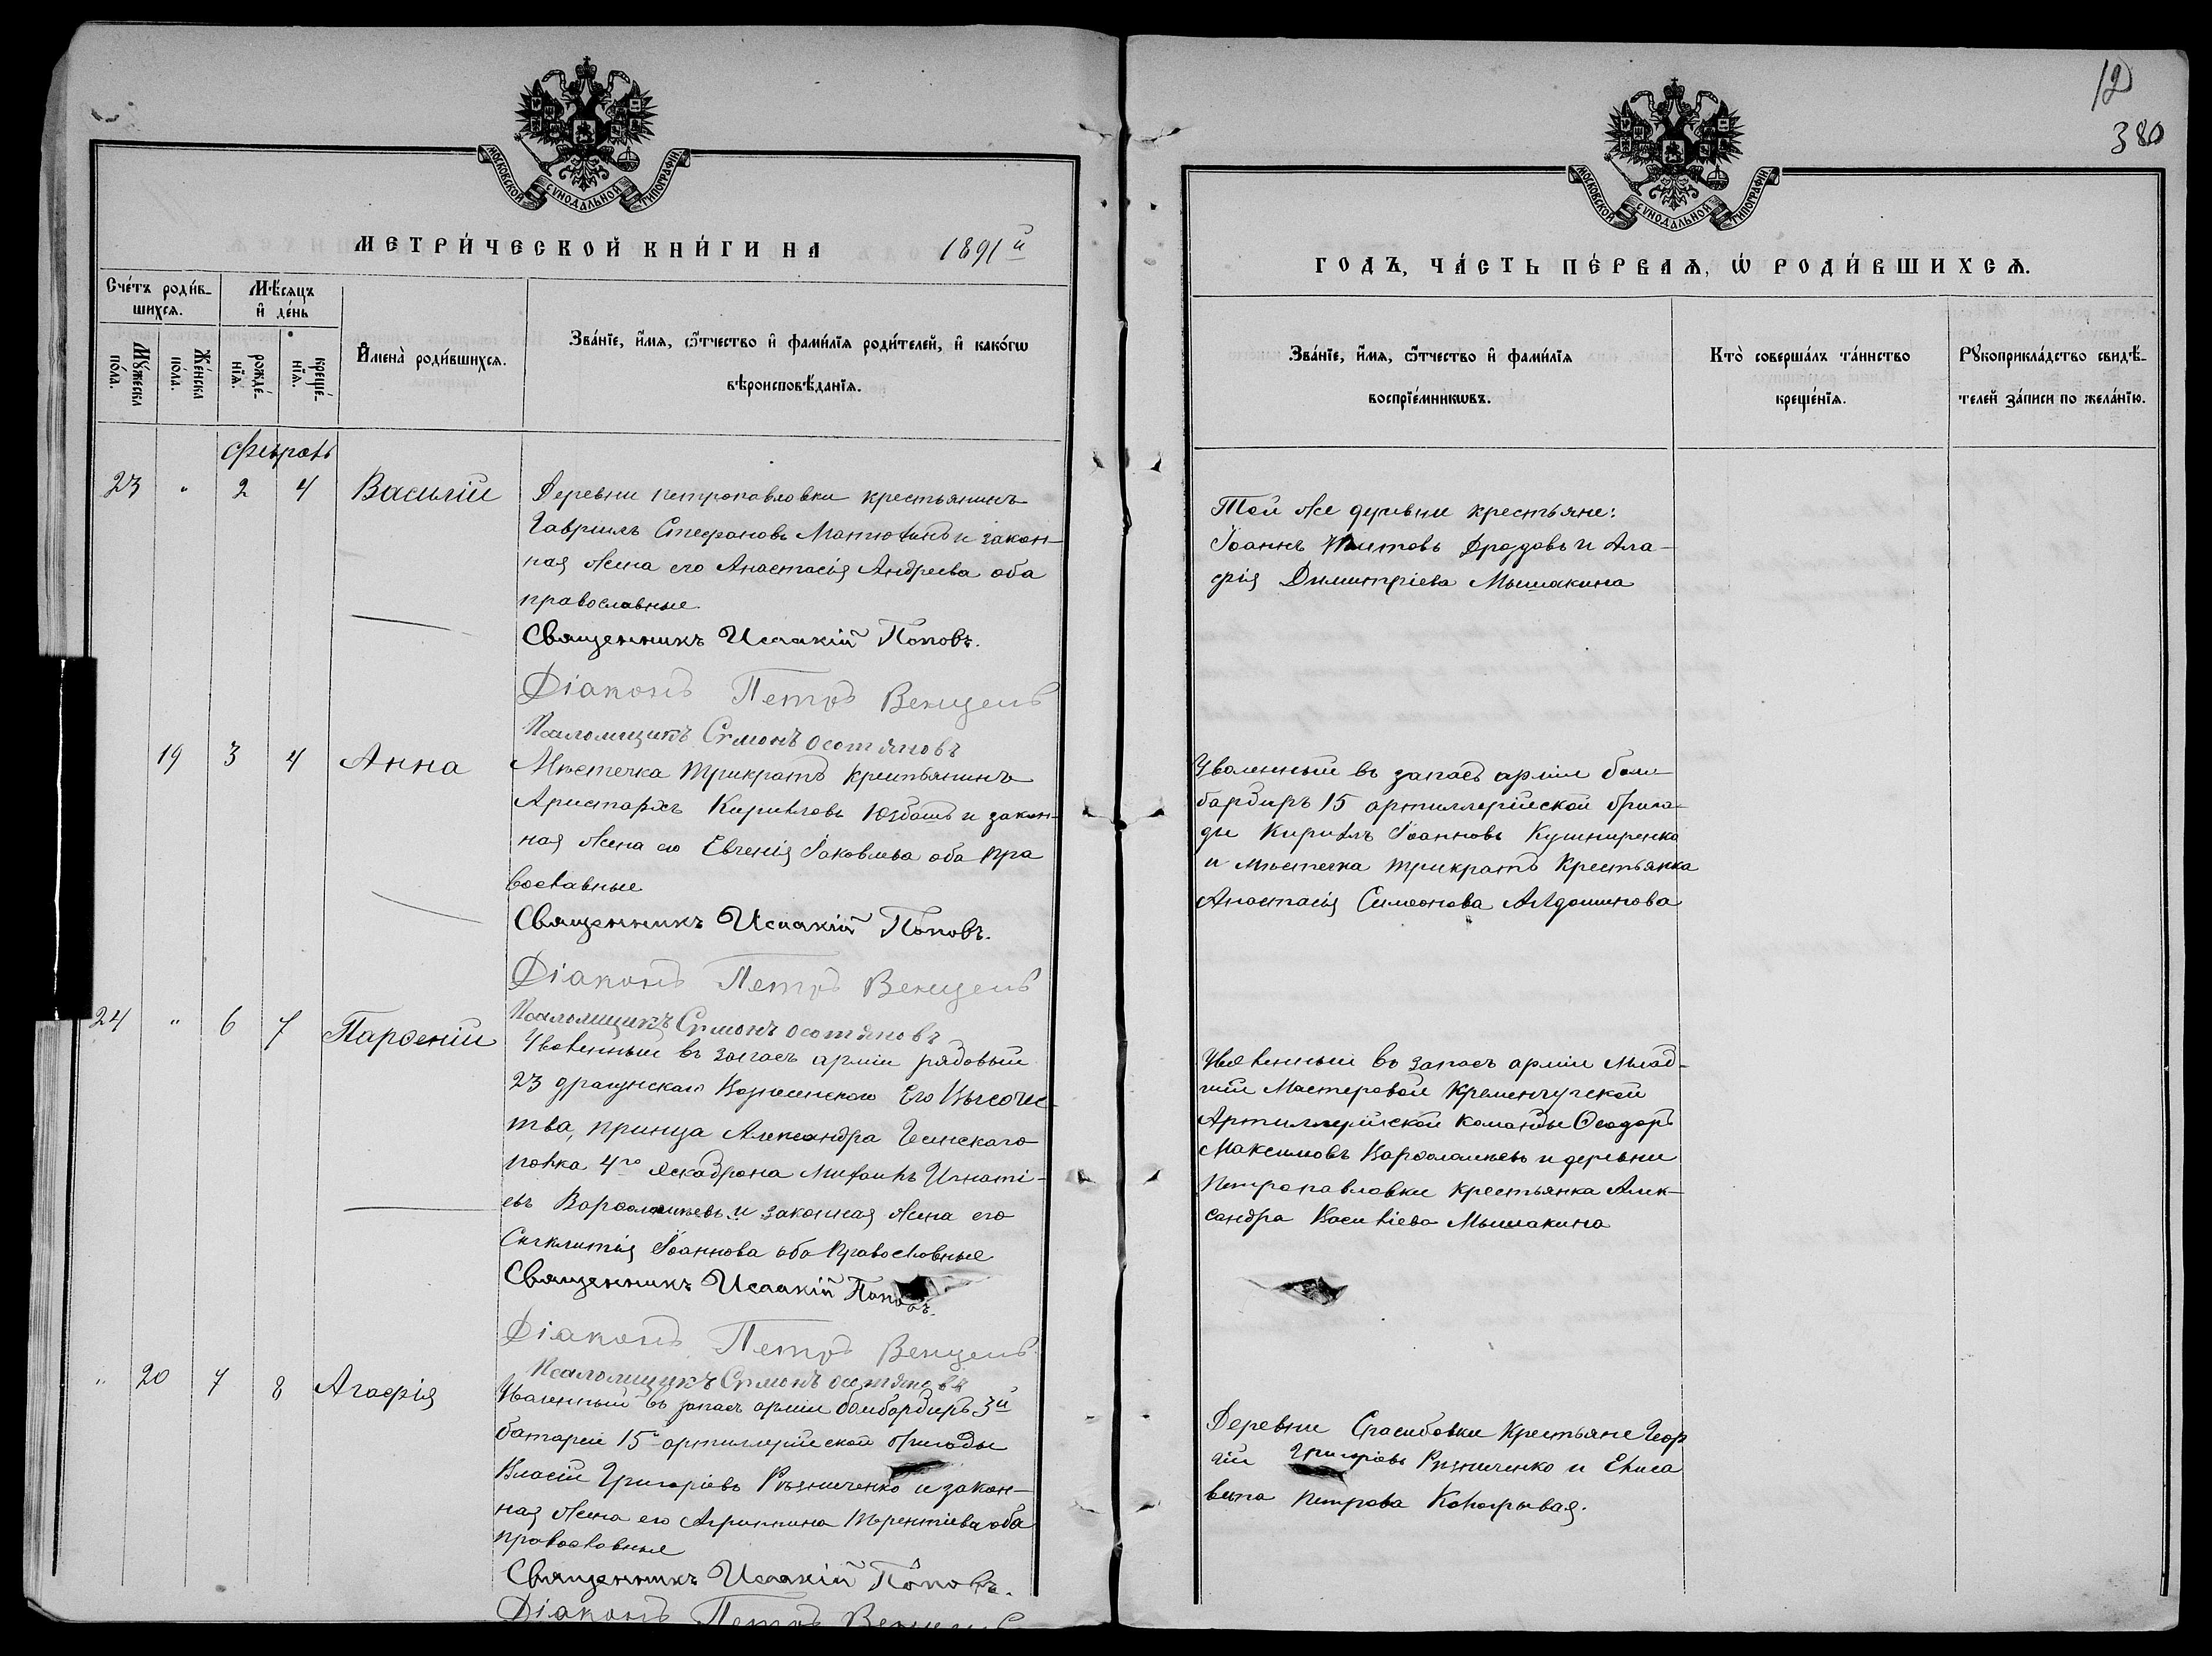 12
380
МОСКОВСКОЙ СѴНОДАЛЬНОЙ ТИПОГРАФІИ
МЕТРИ́ЧЕСКОЙ КНИ́ГИ НА 1891й
Сче́тъ роди́в-
шихсѧ.
Мѣ́сѧцъ
и҆ де́нь
Мꙋ́жеска
по́ла.
Же́нска
по́ла.
рожде́-
нїѧ.
креще́-
нїѧ.
И҆мена̀ роди́вшихсѧ.
Зва́нїе, и҆́мѧ, ѻ҆́тчество и҆ фами́лїѧ роди́телей, и҆ како́гѡ
вѣроисповѣ́данїѧ.
февраль
23 " 2 4 Василій
Деревни Петропавловки крестьянинъ
Гавриилъ Стефановъ Матюхинъ и закон-
ная жена его Анастасія Андреева оба
православные
Священникъ Исаакій Поповъ.
Діаконъ Петръ Венцель
Псаломщикъ Симонъ
19 3 4 Анна
Мѣстечка Трикратъ крестьянинъ
Аристархъ Кирилловъ Юзбашъ и закон-
ная жена его Евгенія Іаковлева оба пра
вославные
Священникъ Исаакій Поповъ.
Діаконъ Петръ Венцель
Псаломщикъ Симонъ
24 " 6 7 Парѳеній
Уволенный въ запасъ арміи рядовый
23 драгунскаго Вознесенскаго Его Высочес-
тва, принца Александра Гесинскаго
полка 4го Эскадрона Михаилъ Игнаті-
евъ Варѳоломѣевъ и законная жена его
Сигклитія Іоаннова оба православные
Священникъ Исаакій Поповъ.
Діаконъ Петръ Венцель
Псаломщикъ Симонъ
" 20 7 8 Агафія
Уволенный въ запасъ арміи бомбардиръ 3й
батареи 15 артиллерійской бригады
Власій Григоріевъ Рѣзниченко и закон-
ная жена его Агриппина Терентіева оба
православные
Священникъ Исаакій Поповъ.
Діаконъ Петръ Венцель
МОСКОВСКОЙ СѴНОДАЛЬНОЙ ТИПОГРАФІИ
ГОДЪ, ЧА́СТЬ ПЕ́РВАѦ, Ѡ҆ РОДИ́ВШИХСѦ.
Зва́нїе, и҆́мѧ, ѻ҆́тчество и҆ фами́лїѧ
воспрїе́мникѡвъ.
Кто̀ соверша́лъ та́инство
креще́нїѧ.
Рꙋкоприкла́дство свидѣ́-
телей за́писи по жела́нїю.
Той же деревни крестьяне:
Іоаннъ Титовъ Дроздовъ и Ага-
фія Димитріева Мышакина
Уволенный въ запасъ арміи бом-
бардиръ 15 артиллерійской брига-
ды Кириллъ Іоанновъ Кушниренко
и мѣстечка Трикратъ крестьянка
Анастасія Симеонова
Уволенный въ запасъ арміи Млад-
шій Мастеровой Кременчугской
Артиллерійской команды Ѳеодоръ
Максимовъ Варѳоломѣевъ и деревни
Петропавловки крестьянка Алек-
сандра Василіева Мышакина
Деревни Спасибовки крестьяне Геор
гій Григоріевъ Рѣзниченко и Елиса
вета Петрова